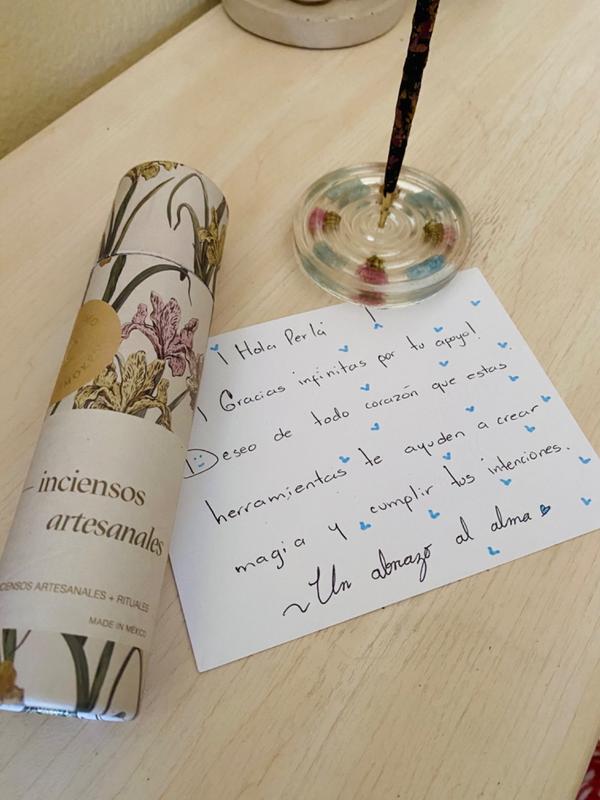 inciensos
artesanales
INCIENSOS ARTESANALES + RITUALES
MADE IN MÉXICO
¡Hola Perla!
¡Gracias infinitas por tu apoyo!
Deseo de todo corazón que estas
herramientas te ayuden a crear
magia y cumplir tus intenciones.
~Un abrazo al alma